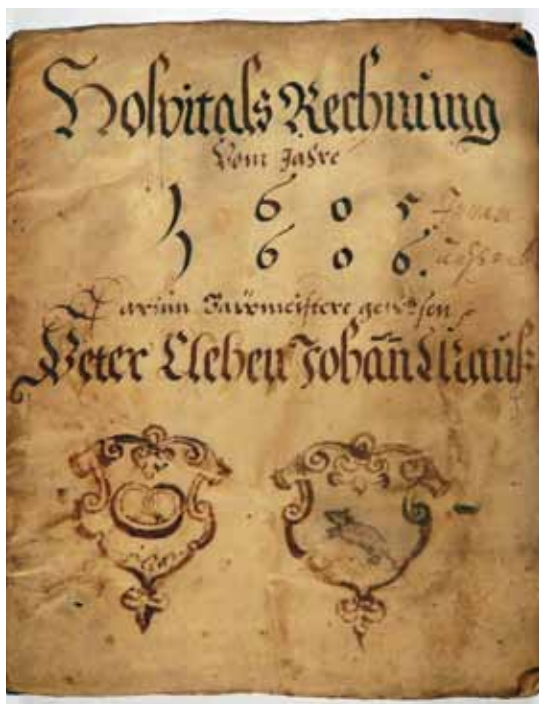 Hospitals Rechnung
Vom Jahre
1605
1606.
Darinn Baumeistere gewesen
Peter Johann